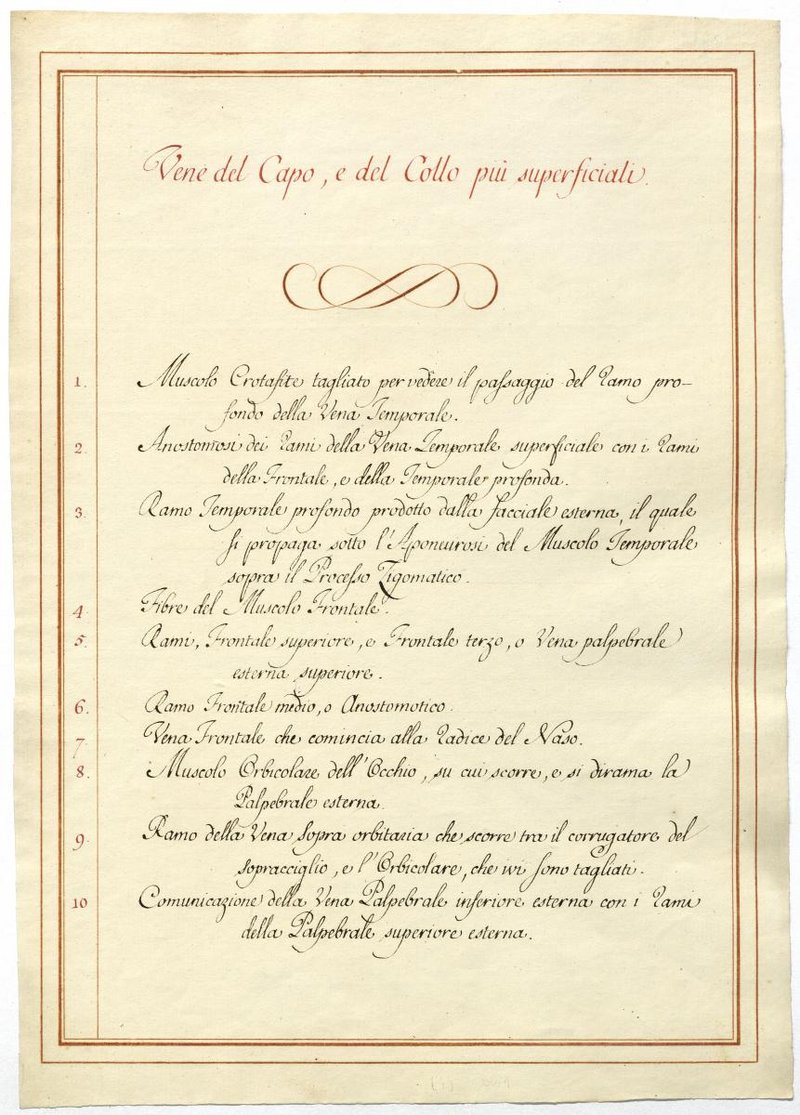 Vene del Capo, e del Collo più superficiali.
1. Muscolo Crotafite tagliato per vedere il passaggio del Ramo pro-
fondo della Vena Temporale.
2 Anostomosi dei Rami della Vena Temporale superficiale con i Rami
della Frontale, e della Temporale profonda.
3. Ramo Temporale profondo prodotto dalla facciale esterna, il quale
si propaga sotto l'Aponeurosi del Muscolo Temporale
sopra il Processo Zigomatico.
4. Fibre del Muscolo Frontale.
5. Rami, Frontale superiore, e Frontale terzo, o Vena palpebrale
esterna superiore.
6. Ramo Frontale medio, o Anostomotico.
7. Vena Frontale che comincia alla Radice del Naso.
8. Muscolo Orbicolare dell'Occhio, su cui scorre, e si dirama la
Palpebrale esterna.
9. Ramo della Vena sopra orbitaria che scorre tra il corrugatore del
sopracciglio, e l'Orbicolare, che ivi sono tagliati.
10 Comunicazione della Vena Palpebrale inferiore esterna con i Rami
della Palpebrale superiore esterna.